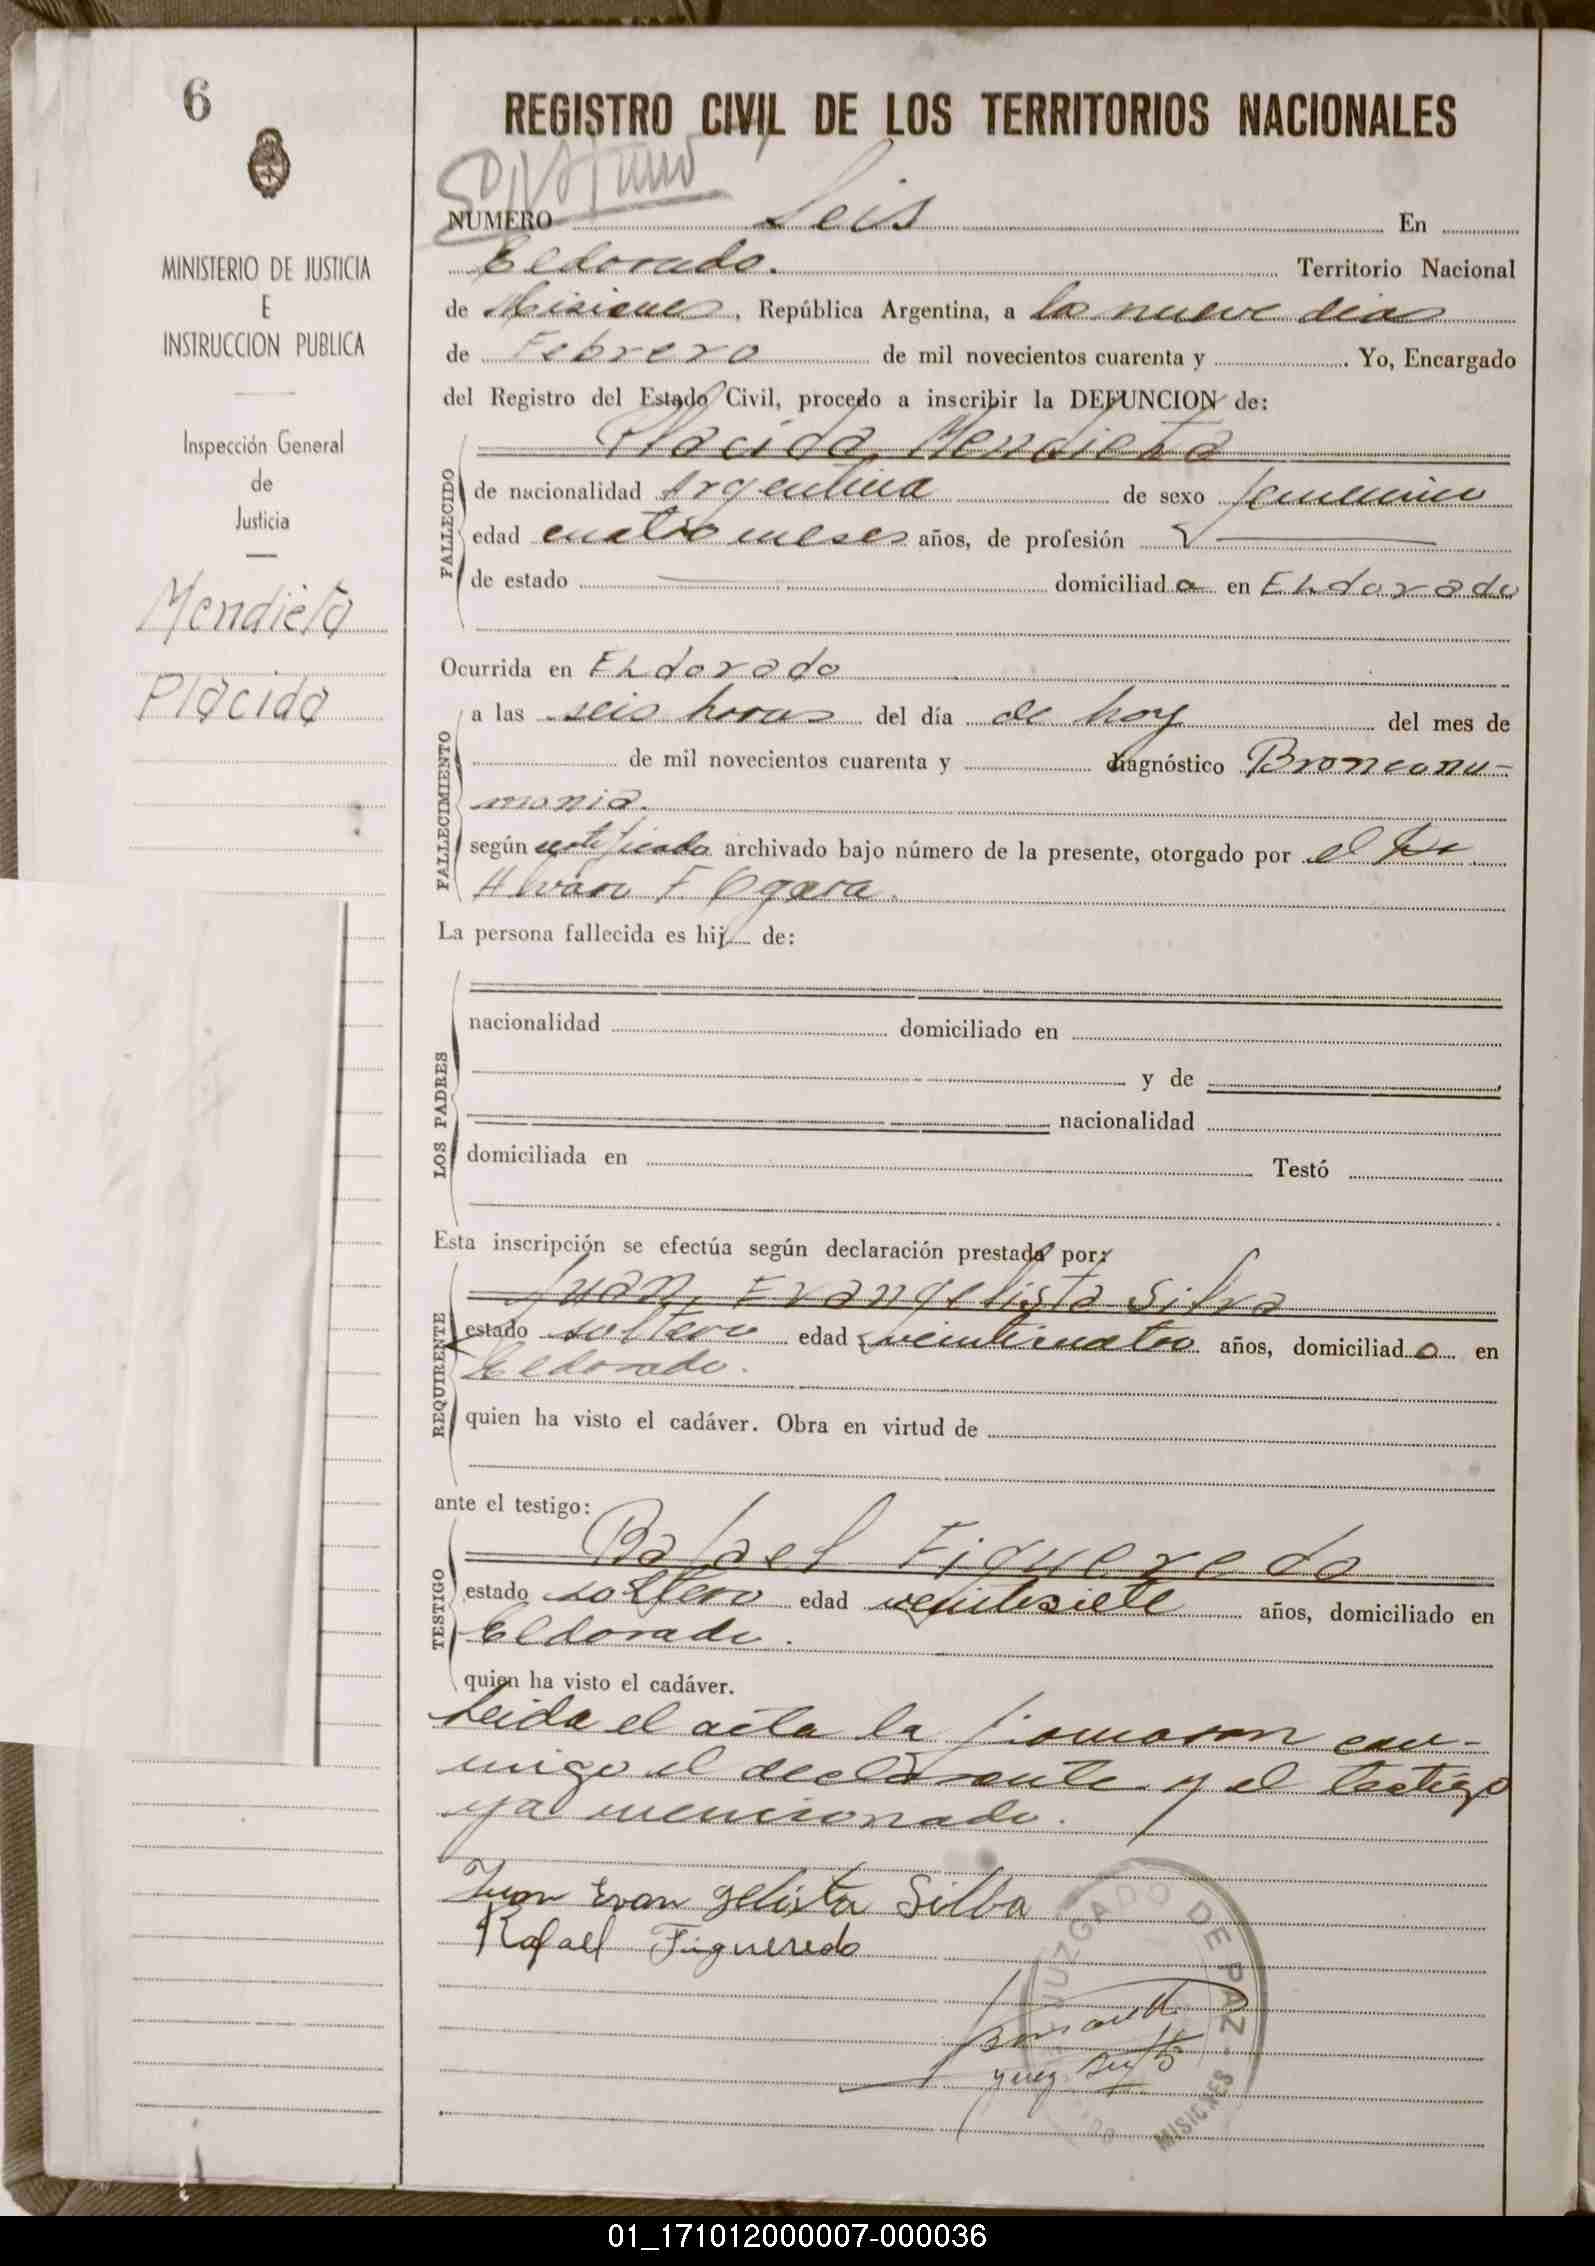 6
REGISTRO CIVIL DE LOS TERRITORIOS NACIONALES
MINISTERIO DE JUSTICIA
E
INSTRUCCION PUBLICA
Inspección General
de
Justicia
Mendieta
Placida
NUMERO Seis En
Eldorado. Territorio Nacional
de Misiones, República Argentina, a los nueve dias
de Febrero de mil novecientos cuarenta y Yo, Encargado
del Registro del Estado Civil, procedo a inscribir la DEFUNCION de:
Placida Mendieta
FALLECIDO
de nacionalidad Argentina de sexo femenino
edad cuatro meses años, de profesión
de estado domiciliada en Eldorado
Ocurrida en Eldorado
FALLECIMIENTO
a las seis horas del día de hoy del mes de
de mil novecientos cuarenta y diagnóstico Bronconu-
monia.
según certificado archivado bajo número de la presente, otorgado por el Dr
Alvaro F. Ogara.
La persona fallecida es hij de:
LOS PADRES
nacionalidad domiciliado en
y de
nacionalidad
domiciliada en Testó
Esta inscripción se efectúa según declaración prestada por:
Juan Evangelista Silva
REQUIRENTE
estado soltero edad veinticuatro años, domiciliado en
Eldorado.
quien ha visto el cadáver. Obra en virtud de
ante el testigo:
Rafael Figueredo
TESTIGO
estado soltero edad veintisiete años, domiciliado en
Eldorado.
quien ha visto el cadáver.
Leida el acta la firmaron con-
migo el declarante y el testigo
ya mencionado.
Juan Evangelista Silba
Rafael Figueredo
JUZGADO DE PAZ
MISIONES
01_171012000007-000036